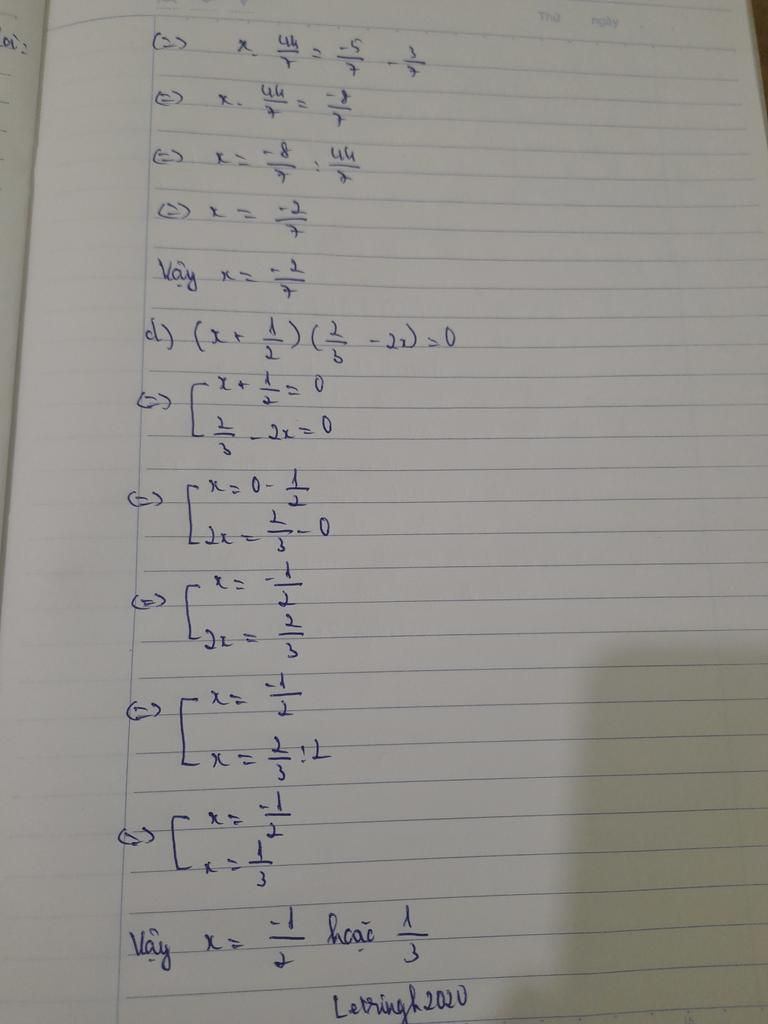 Thứ ngày
(=) x. 44/7 = -5/7 - 3/7
(=) x. 44/7 = -8/7
(=) x = -8/7 : 44/7
(=) x = -2/7
Vậy x = -2/7
d) (x + 1/2) (2/3 - 2x) = 0
(=) [ x + 1/2 = 0
2/3 - 2x = 0
(=) [ x = 0 - 1/2
2x = 2/3 - 0
(=) [ x = -1/2
2x = 2/3
(=) [ x = -1/2
x = 2/3 : 2
(=) [ x = -1/2
x = 1/3
Vậy x = -1/2 hoặc 1/3